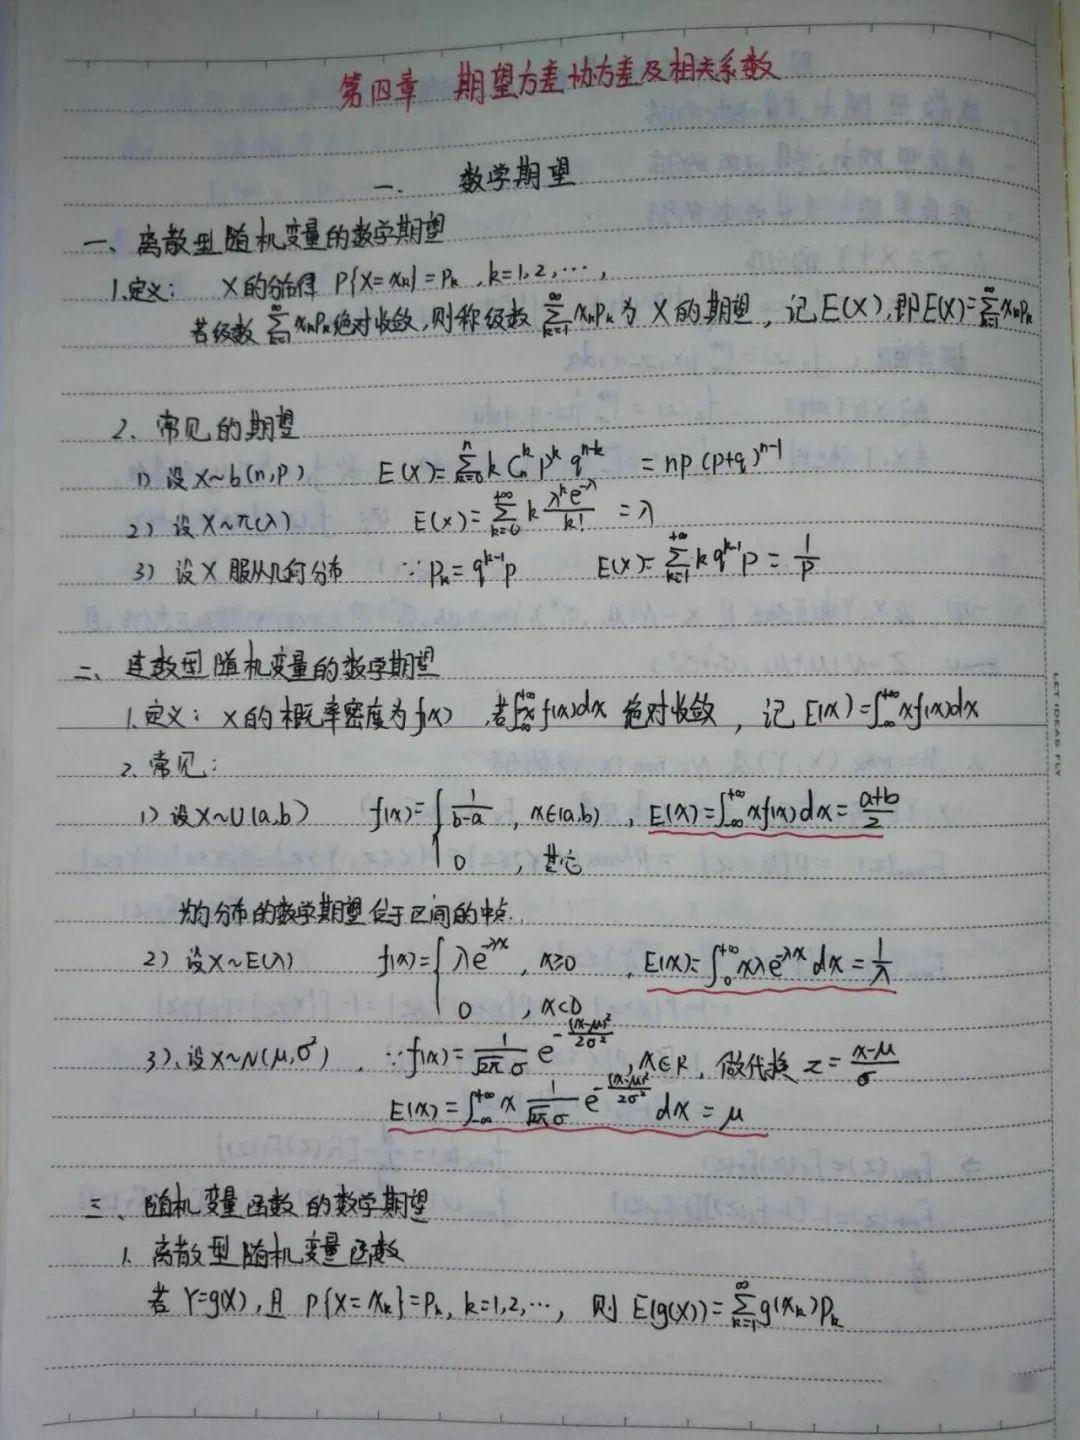 第四章 期望方差协方差及相关系数
一. 数学期望
一、离散型随机变量的数学期望
1.定义: X的分布律 P{X=xₖ}=Pₖ, k=1,2,…,
若级数 ∑_{k=1}^{∞} xₖPₖ绝对收敛,则称级数 ∑_{k=1}^{∞} xₖPₖ为X的期望, 记E(X),即E(X)=∑_{k=1}^{∞} xₖPₖ
2. 常见的期望
1) 设X~b(n,p) E(X)=∑_{k=0}^{n} k Cₙᵏ pᵏ qⁿ⁻ᵏ = np(p+q)ⁿ⁻¹
2) 设X~π(λ) E(X)=∑_{k=0}^{+∞} k λᵏe^{-λ}/k! = λ
3) 设X服从几何分布 ∵Pₖ=qᵏ⁻¹p E(X)=∑_{k=1}^{+∞} k qᵏ⁻¹p = 1/p
二、连数型随机变量的数学期望
1.定义: X的概率密度为f(x) 若∫_{-∞}^{+∞} x f(x)dx 绝对收敛, 记E(X)=∫_{-∞}^{+∞} xf(x)dx
2.常见:
1) 设X~U(a,b) f(x)={ 1/(b-a), x∈(a,b), E(X)=∫_{-∞}^{+∞} xf(x)dx = (a+b)/2
0, 其它
均匀分布的数学期望位于区间的中点.
2) 设X~E(λ) f(x)={ λe^{-λx}, x≥0, E(X)=∫_{0}^{+∞} xλe^{-λx}dx = 1/λ
0, x<0
3)、设X~N(μ,σ²), ∵f(x)= 1/(√2π σ) e^{-(x-μ)²/2σ²}, x∈R, 做代换 z=(x-μ)/σ
E(X)=∫_{-∞}^{+∞} x 1/(√2π σ) e^{-(x-μ)²/2σ²} dx = μ
三、随机变量函数的数学期望
1. 离散型随机变量函数
若Y=g(X),且 P{X=xₖ}=Pₖ, k=1,2,…, 则 E(g(X))=∑_{k=1}^{∞} g(xₖ)Pₖ
LET IDEAS FLY